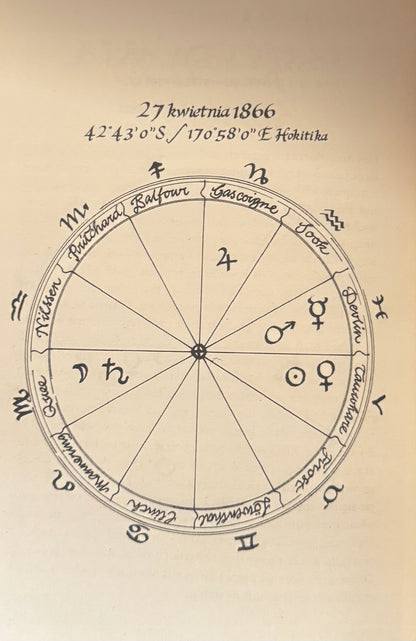 27 kwietnia 1866
42°43'0"S / 170°58'0"E Hokitika
♐ ♑ ♒ ♓ ♈ ♉ ♊ ♋ ♌ ♍ ♎ ♏
Balfour
Gascoigne
Sook
Devlin
Tauwhare
Frost
Löwenthal
Clinch
Mannering
Quee
Nilssen
Pritchard
♃
☿
♂
☉ ♀
☾ ♄